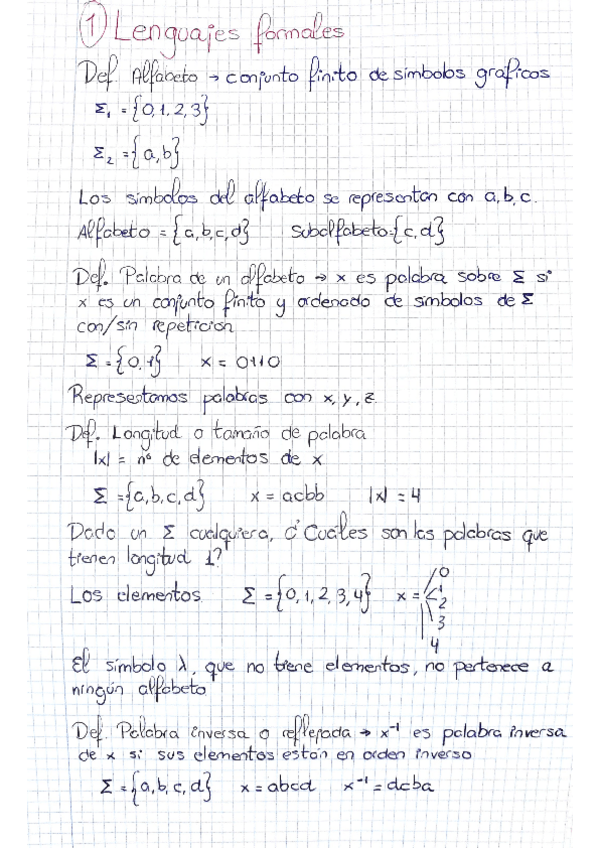 ① Lenguajes formales
Def. Alfabeto → conjunto finito de símbolos gráficos
Σ₁ = {0,1,2,3}
Σ₂ = {a,b}
Los símbolos del alfabeto se representan con a,b,c.
Alfabeto = {a,b,c,d} Subalfabeto={c,d}
Def. Palabra de un alfabeto → x es palabra sobre Σ si
x es un conjunto finito y ordenado de símbolos de Σ
con/sin repetición
Σ = {0,1} x = 0110
Representamos palabras con x, y, z
Def. Longitud o tamaño de palabra
|x| = nº de elementos de x
Σ = {a,b,c,d} x = acbb |x| = 4
Dado un Σ cualquiera, ¿Cuáles son las palabras que
tienen longitud 1?
Los elementos Σ = {0,1,2,3,4} x = 0
1
2
3
4
El símbolo λ, que no tiene elementos, no pertenece a
ningún alfabeto
Def. Palabra inversa o reflejada → x⁻¹ es palabra inversa
de x si sus elementos están en orden inverso
Σ = {a,b,c,d} x = abcd x⁻¹ = dcba